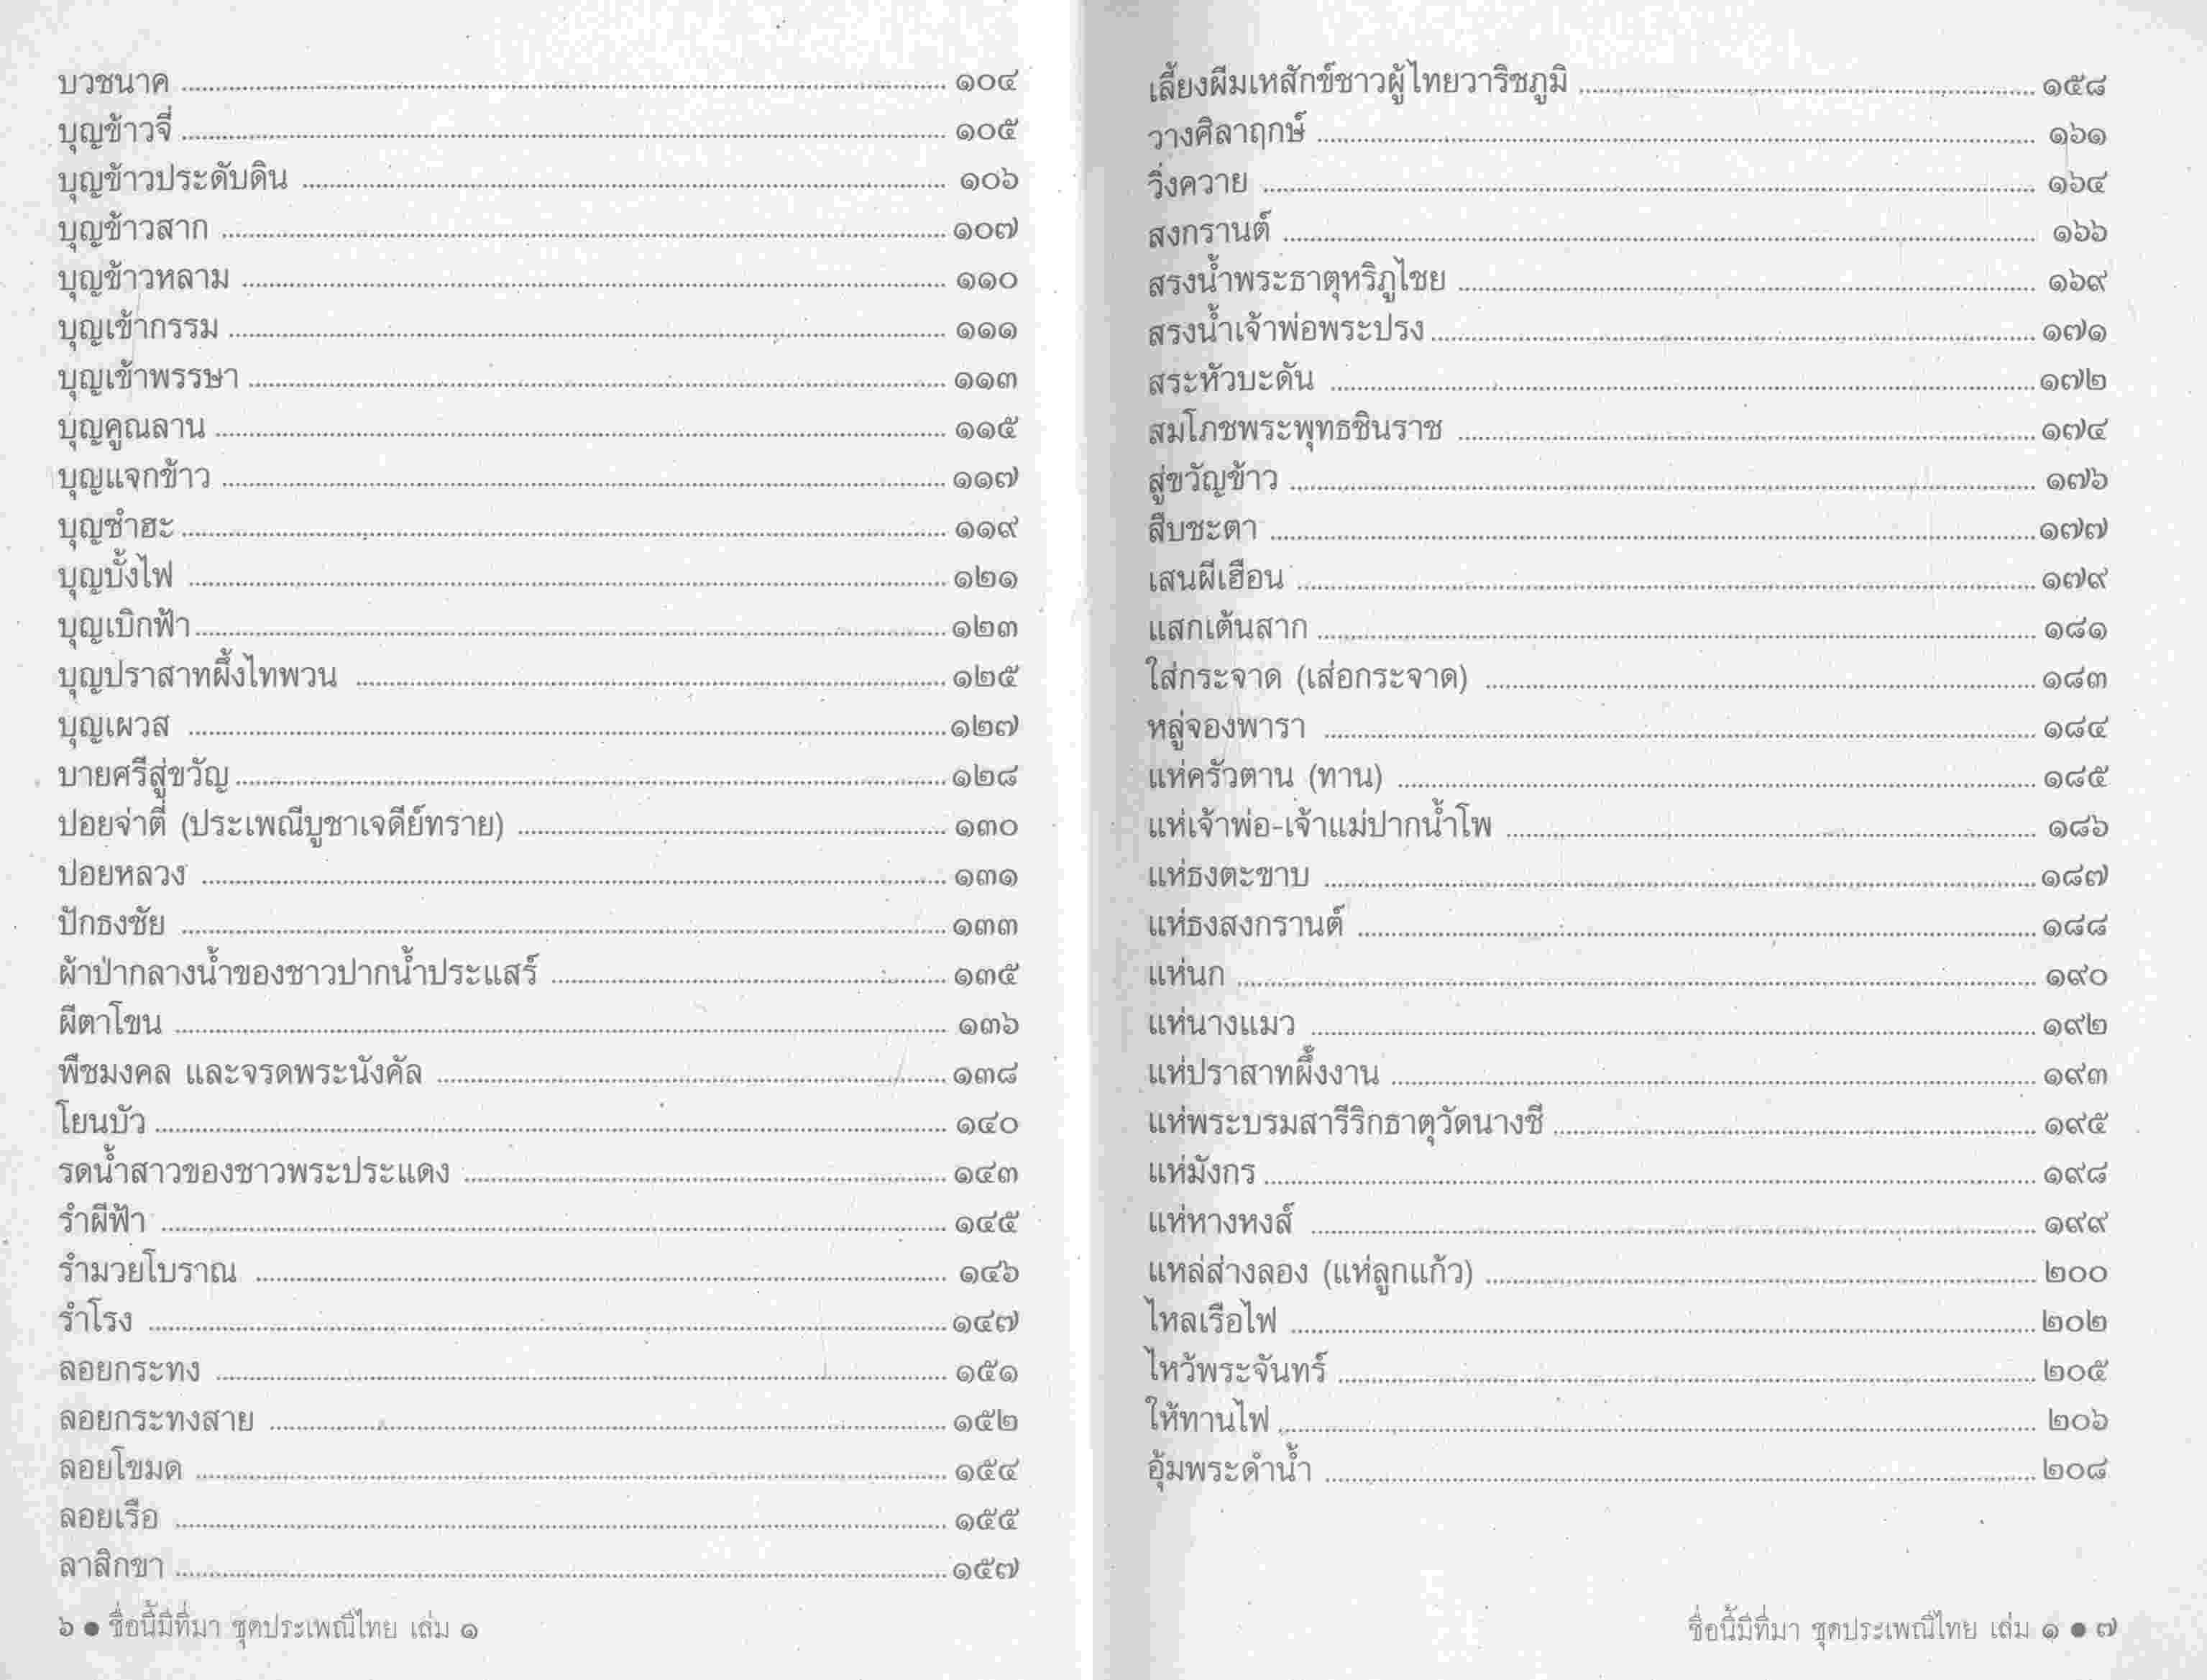 บวชนาค ๑๐๔
บุญข้าวจี่ ๑๐๕
บุญข้าวประดับดิน ๑๐๖
บุญข้าวสาก ๑๐๗
บุญข้าวหลาม ๑๑๐
บุญเข้ากรรม ๑๑๑
บุญเข้าพรรษา ๑๑๓
บุญคูณลาน ๑๑๕
บุญแจกข้าว ๑๑๗
บุญชำฮะ ๑๑๙
บุญบั้งไฟ ๑๒๑
บุญเบิกฟ้า ๑๒๓
บุญปราสาทผึ้งไทพวน ๑๒๕
บุญเผวส ๑๒๗
บายศรีสู่ขวัญ ๑๒๘
ปอยจ่าตี่ (ประเพณีบูชาเจดีย์ทราย) ๑๓๐
ปอยหลวง ๑๓๑
ปักธงชัย ๑๓๓
ผ้าป่ากลางน้ำของชาวปากน้ำประแสร์ ๑๓๕
ผีตาโขน ๑๓๖
พืชมงคล และจรดพระนังคัล ๑๓๘
โยนบัว ๑๔๐
รดน้ำสาวของชาวพระประแดง ๑๔๓
รำผีฟ้า ๑๔๕
รำมวยโบราณ ๑๔๖
รำโรง ๑๔๗
ลอยกระทง ๑๕๑
ลอยกระทงสาย ๑๕๒
ลอยโขมด ๑๕๔
ลอยเรือ ๑๕๕
ลาสิกขา ๑๕๗
๖ ● ชื่อนี้มีที่มา ชุดประเพณีไทย เล่ม ๑
เลี้ยงผีมเหสักข์ชาวผู้ไทยวาริชภูมิ ๑๕๘
วางศิลาฤกษ์ ๑๖๑
วิ่งควาย ๑๖๔
สงกรานต์ ๑๖๖
สรงน้ำพระธาตุหริภูไชย ๑๖๙
สรงน้ำเจ้าพ่อพระปรง ๑๗๑
สระหัวบะดัน ๑๗๒
สมโภชพระพุทธชินราช ๑๗๔
สู่ขวัญข้าว ๑๗๖
สืบชะตา ๑๗๗
เสนผีเฮือน ๑๗๙
แสกเต้นสาก ๑๘๑
ใส่กระจาด (เส่อกระจาด) ๑๘๓
หลู่จองพารา ๑๘๔
แห่ครัวตาน (ทาน) ๑๘๕
แห่เจ้าพ่อ-เจ้าแม่ปากน้ำโพ ๑๘๖
แห่ธงตะขาบ ๑๘๗
แห่ธงสงกรานต์ ๑๘๘
แห่นก ๑๙๐
แห่นางแมว ๑๙๒
แห่ปราสาทผึ้งงาน ๑๙๓
แห่พระบรมสารีริกธาตุวัดนางชี ๑๙๕
แห่มังกร ๑๙๘
แห่หางหงส์ ๑๙๙
แหล่ส่างลอง (แห่ลูกแก้ว) ๒๐๐
ไหลเรือไฟ ๒๐๒
ไหว้พระจันทร์ ๒๐๕
ให้ทานไฟ ๒๐๖
อุ้มพระดำน้ำ ๒๐๘
ชื่อนี้มีที่มา ชุดประเพณีไทย เล่ม ๑ ● ๗